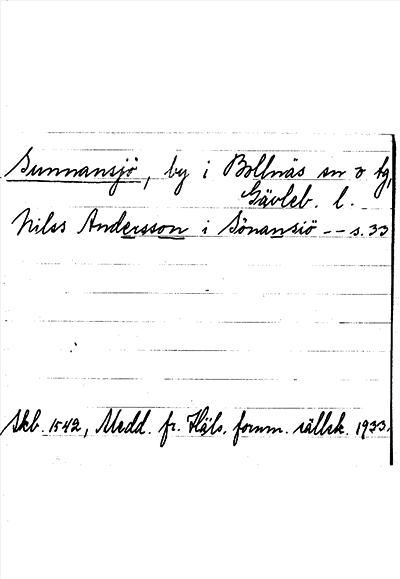 Sunnansjö, by i Bollnäs sn o tg,
Gävleb. l.
Nilss Andersson i Sönansiö -- s. 33
Skb. 1542, Medd. fr. Häls. fornm. sällsk. 1933.